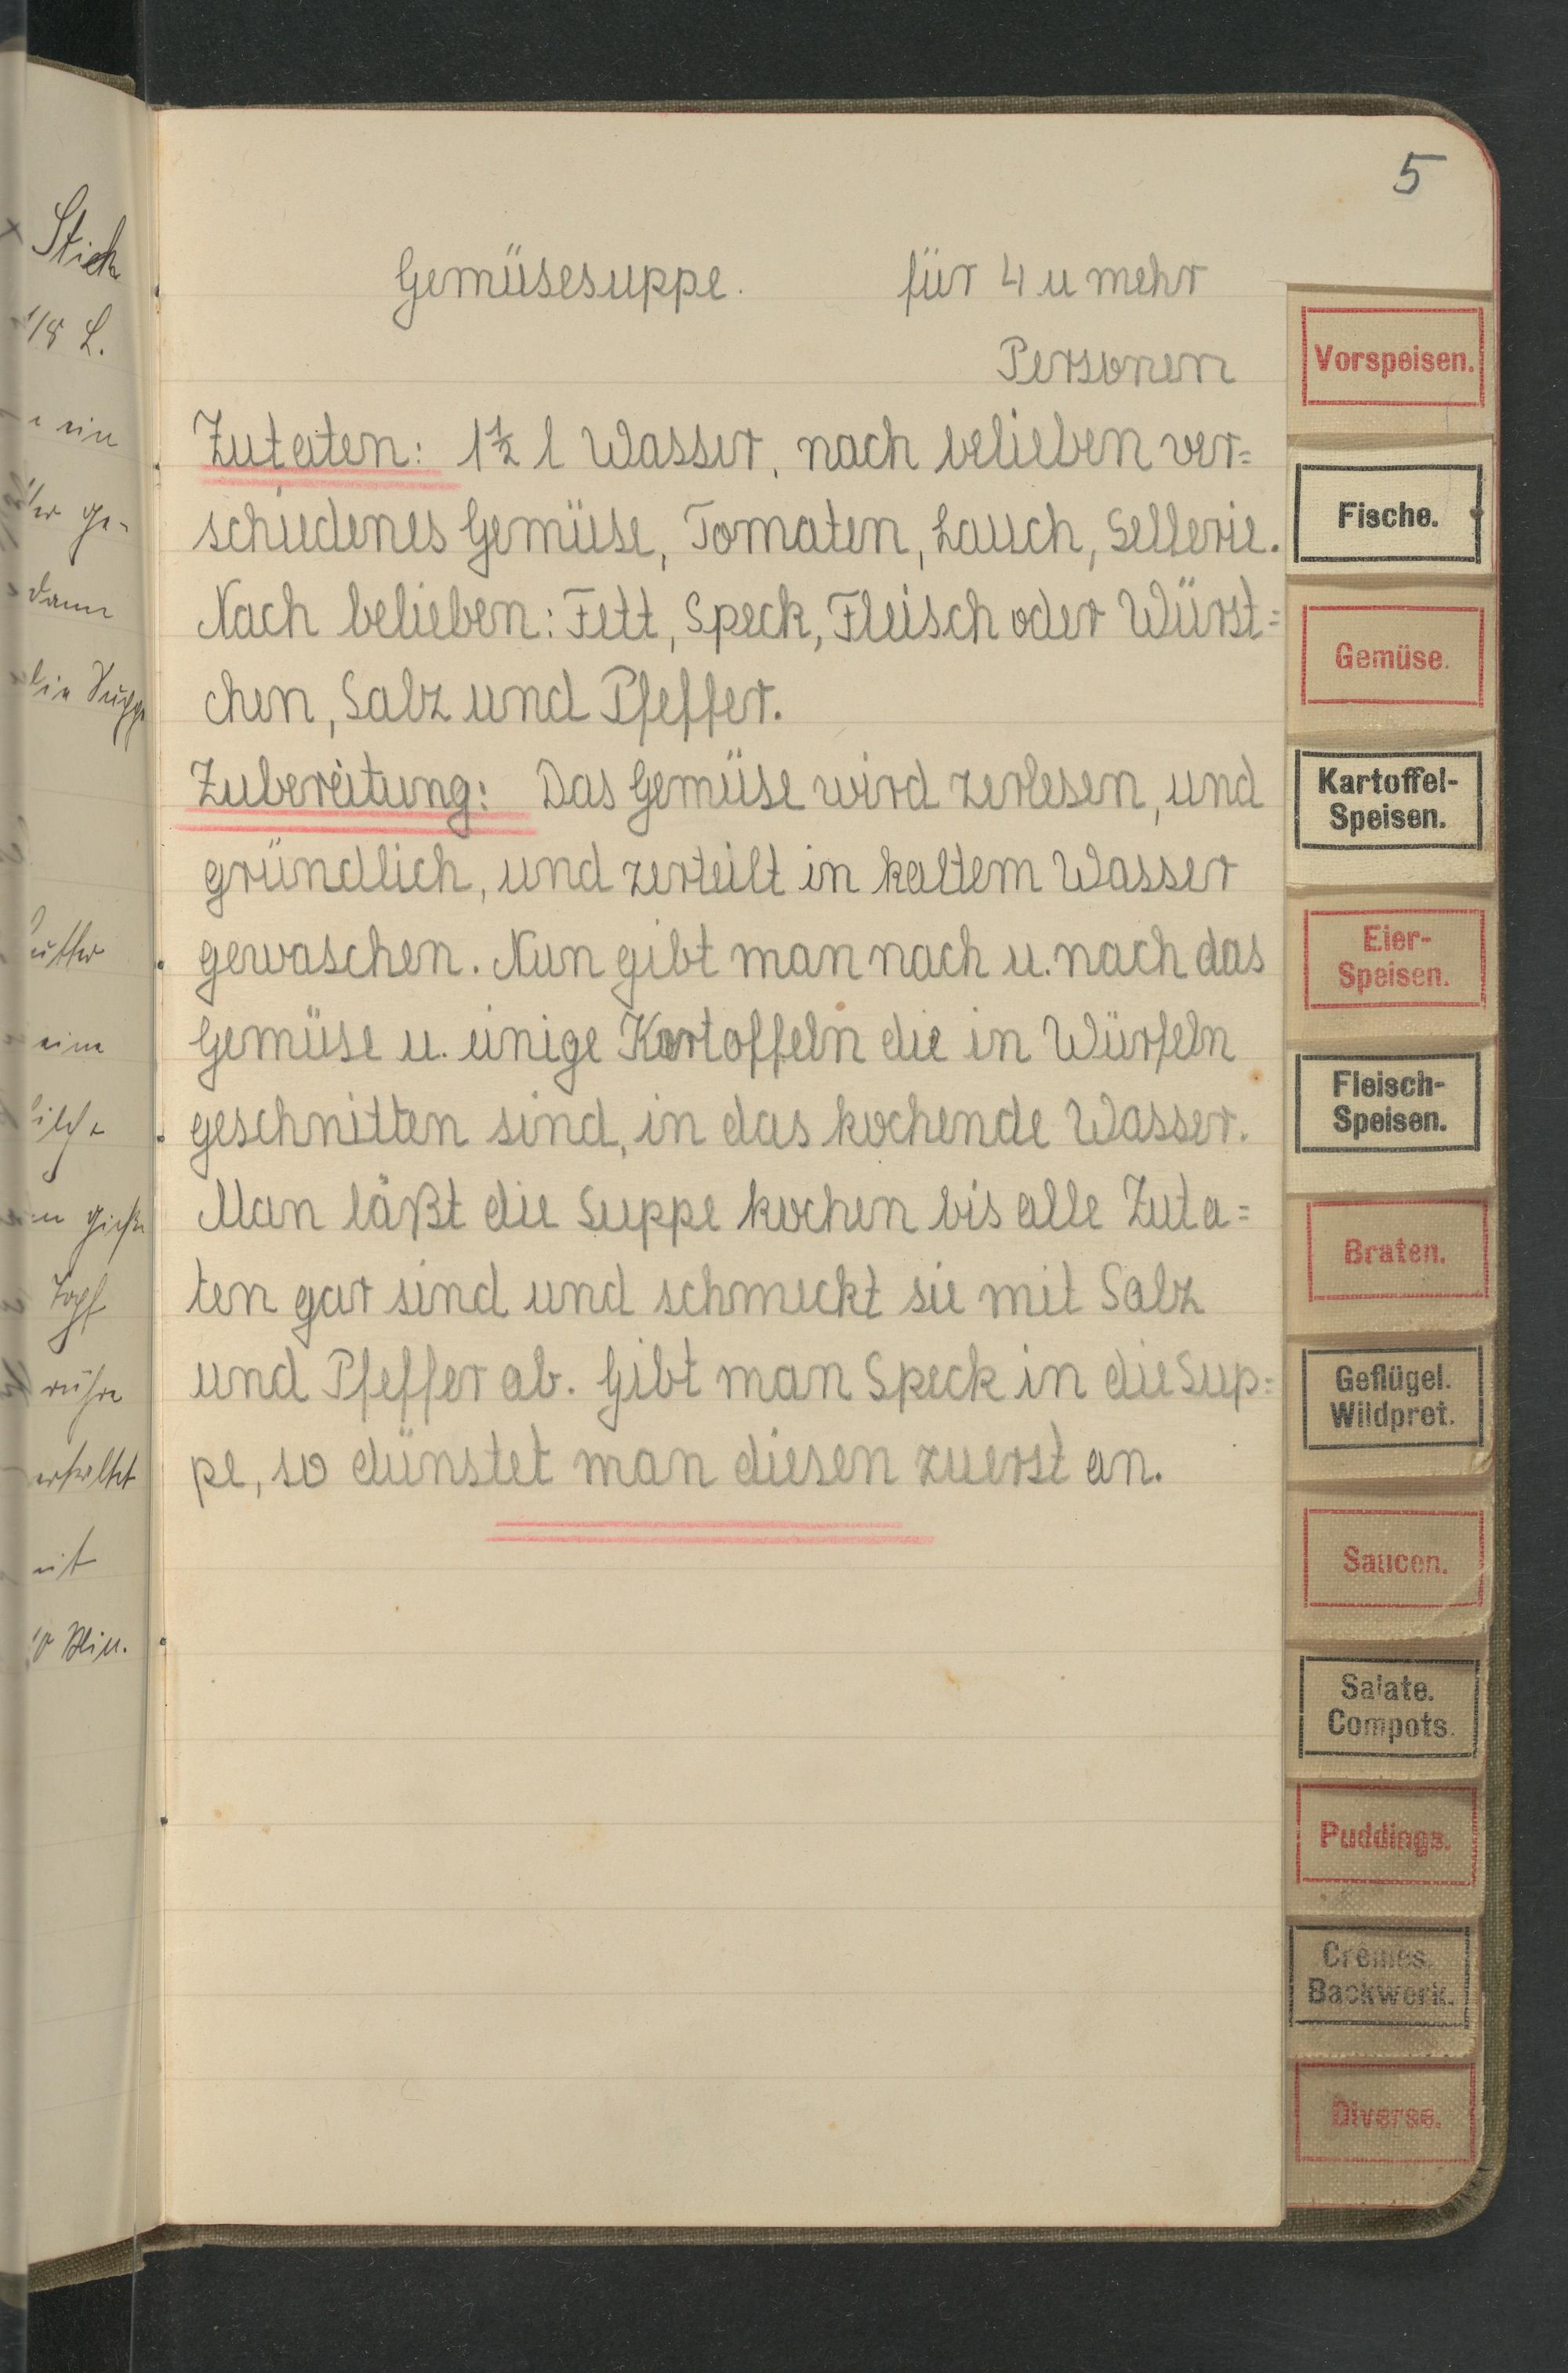 5
Gemüsesuppe. für 4 u mehr
Personen
Zutaten: 1½ l Wasser, nach belieben ver=
schiedenes Gemüse, Tomaten, Lauch, Sellerie.
Nach belieben: Fett, Speck, Fleisch oder Würst=
chen, Salz und Pfeffer.
Zubereitung: Das Gemüse wird zerlesen, und
gründlich, und zerteilt in kaltem Wasser
gewaschen. Nun gibt man nach u. nach das
Gemüse u. einige Kartoffeln die in Würfeln
geschnitten sind, in das kochende Wasser.
Man läßt die Suppe kochen bis alle Zuta=
ten gar sind und schmeckt sie mit Salz
und Pfeffer ab. Gibt man Speck in die Sup=
pe, so dünstet man diesen zuerst an.
Vorspeisen.
Fische.
Gemüse.
Kartoffel-
Speisen.
Eier-
Speisen.
Fleisch-
Speisen.
Braten.
Geflügel.
Wildpret.
Saucen.
Salate.
Compots.
Puddings.
Crèmes.
Backwerk.
Diverse.
1/8 L.
ein
dann
eine
Topf